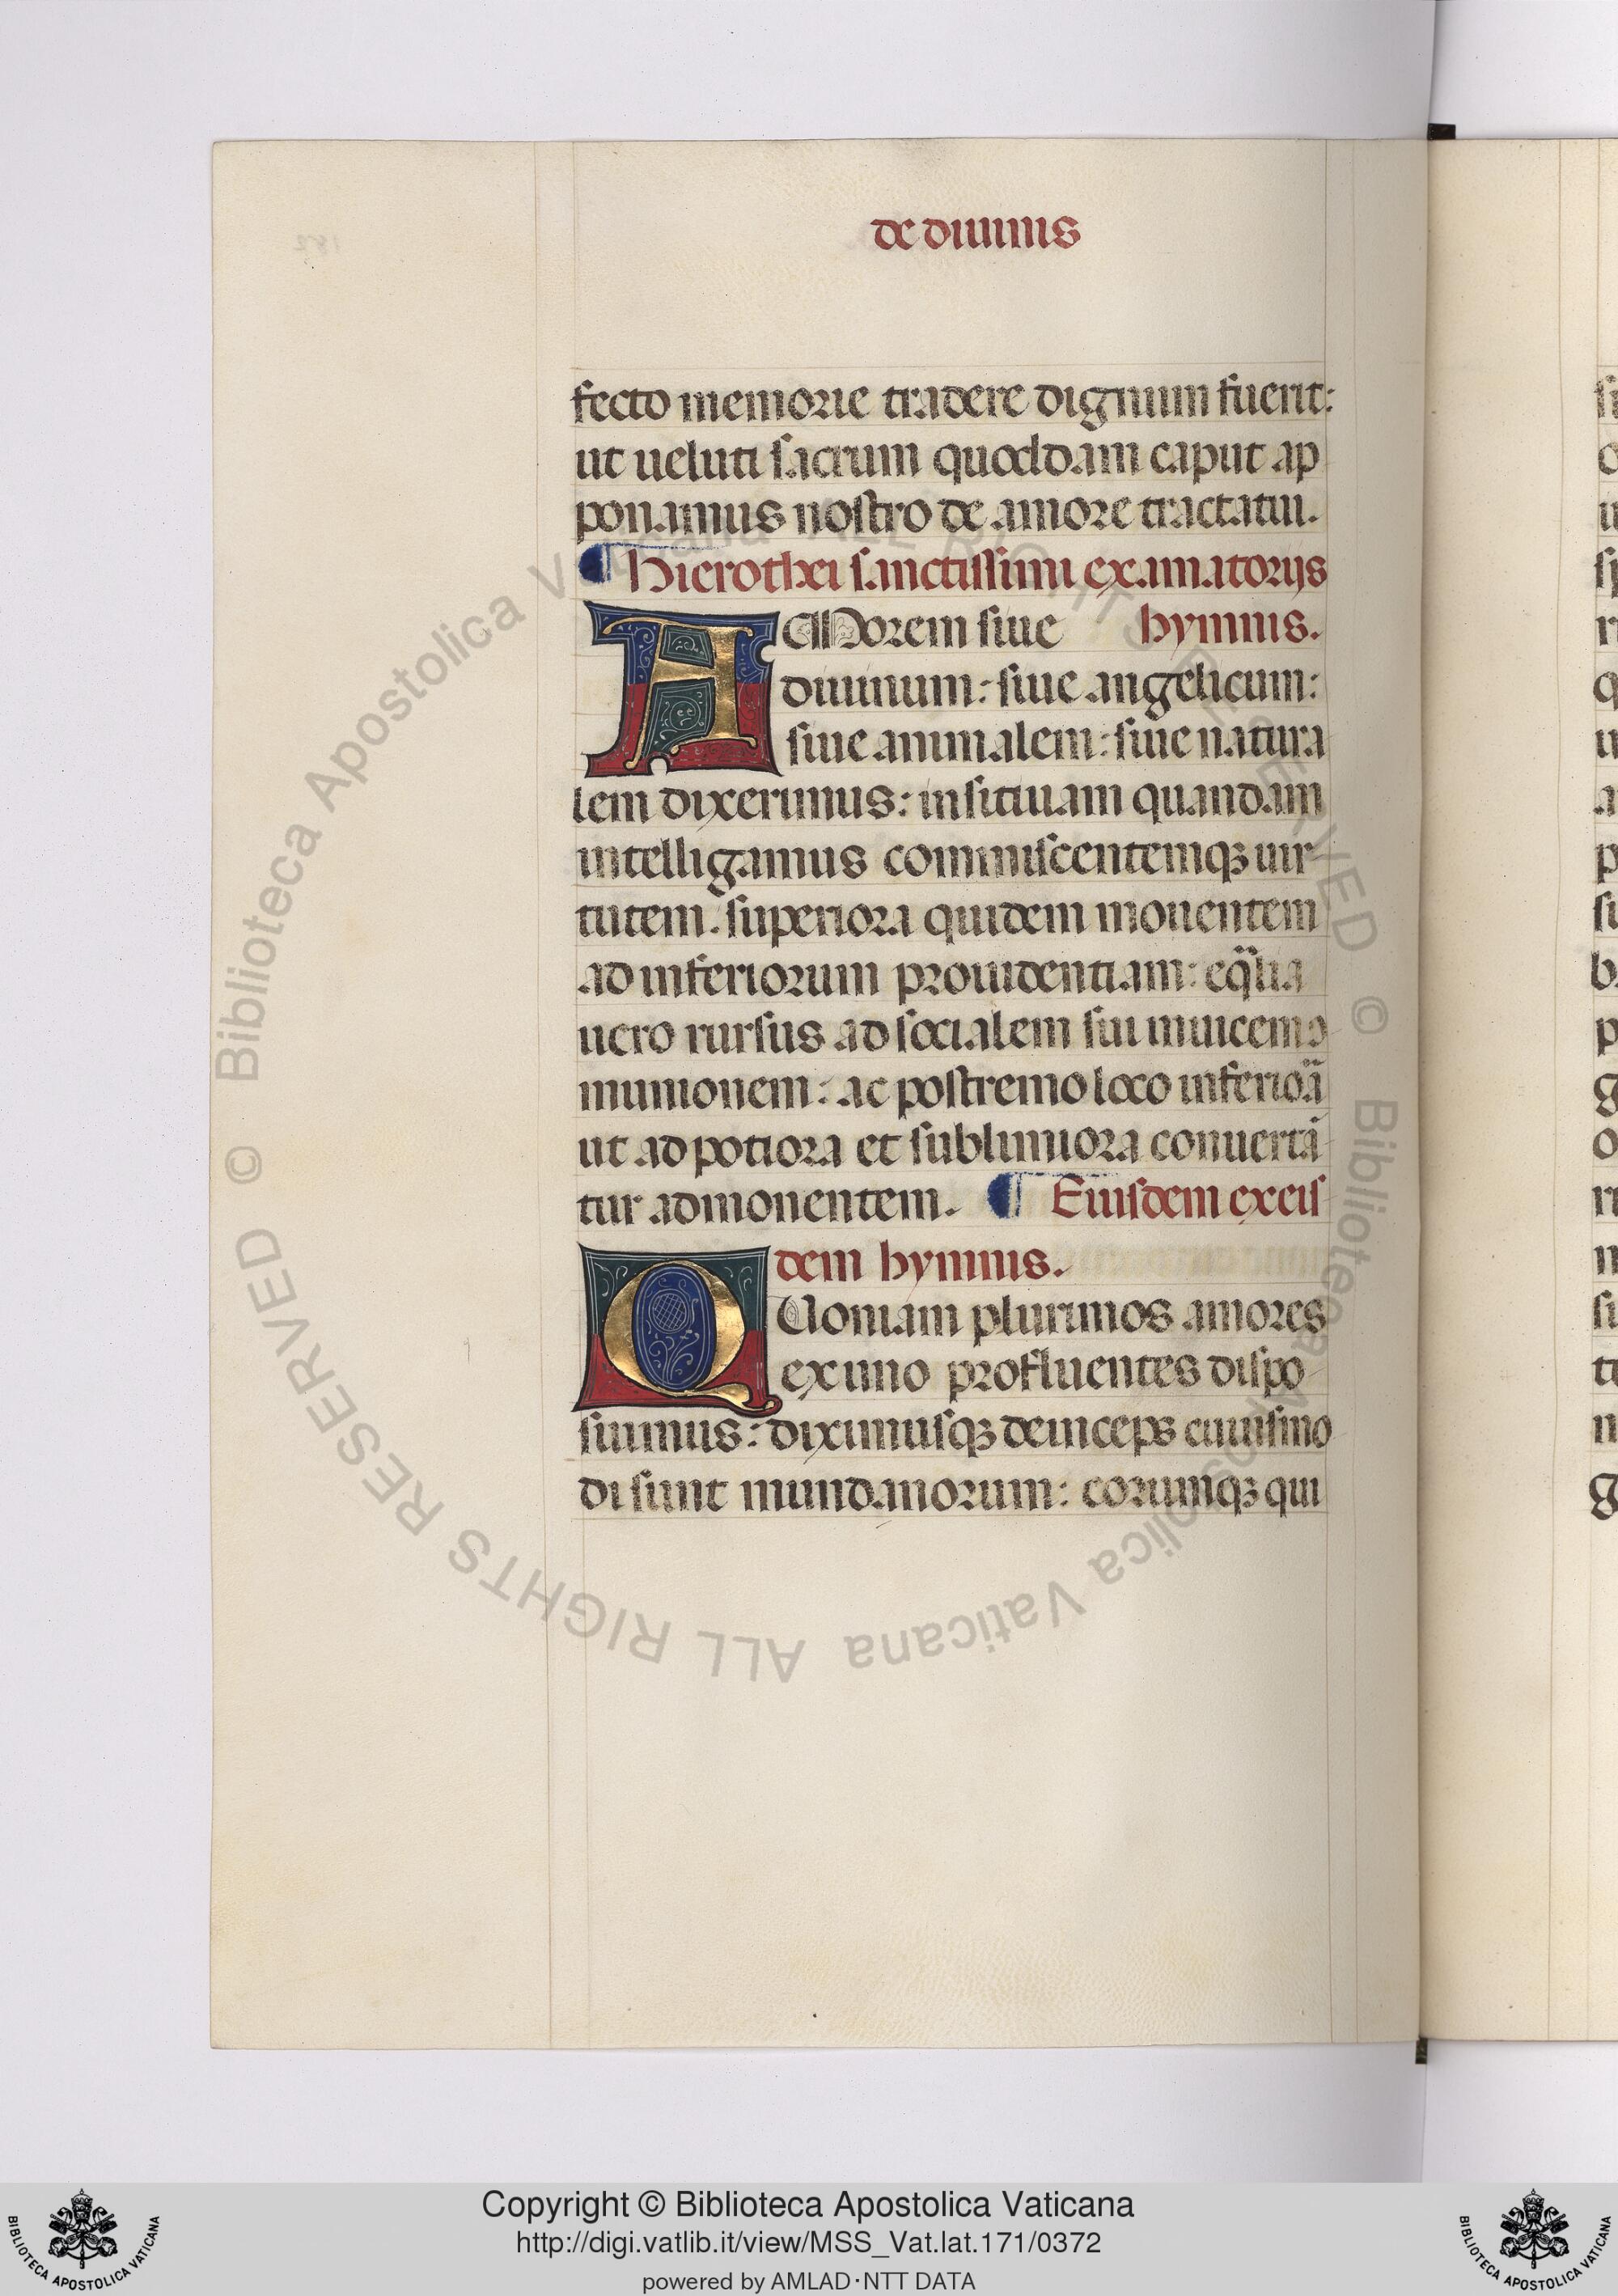 de diuinis
fecto memorie tradere dignum fuerit:
ut ueluti sacrum quoddam caput ap
ponamus nostro de amore tractatui.
¶ Hierothei sanctissimi ex amatorijs
AMorem siue hymnis.
diuinum: siue angelicum:
siue animalem: siue natura
lem dixerimus: insitiuam quandam
intelligamus commiscentemqꝫ uir-
tutem. superiora quidem mouentem
ad inferiorum prouidentiam: eq̃lia
uero rursus ad socialem sui inuicem
munionem: ac postremo loco inferioã
ut ad potiora et sublimiora conuertã
tur admonentem. ¶ Eiusdem ex eis
dem hymnis.
QUoniam plurimos amores
ex uno profluentes dispo
suimus: diximusqꝫ deinceps cuiusmo
di sunt mundanorum: eorumqꝫ qui
© Biblioteca Apostolica Vaticana ALL RIGHTS RESERVED © Biblioteca Apostolica Vaticana ALL RIGHTS RESERVED
Copyright © Biblioteca Apostolica Vaticana
http://digi.vatlib.it/view/MSS_Vat.lat.171/0372
powered by AMLAD·NTT DATA
BIBLIOTECA APOSTOLICA VATICANA
BIBLIOTECA APOSTOLICA VATICANA